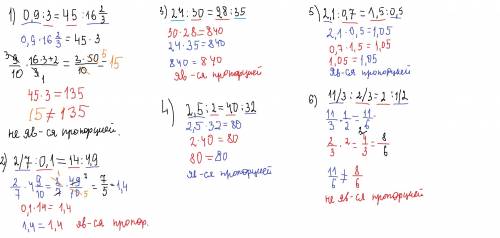 1) 0,9 : 3 = 45 : 16 2/3
0,9 · 16 2/3 = 45 · 3
9/10 · 16·3+2/3 = 3·50/10 = 15
45·3 = 135
15 ≠ 135
не яв-ся пропорцией.
2) 2/7 : 0,1 = 14 : 49
2/7 · 4 9/10 = 2/7 · 49/10 = 7/5 = 1,4
0,1·14 = 1,4
1,4 = 1,4 яв-ся пропор.
3) 24 : 30 = 28 : 35
30·28 = 840
24·35 = 840
840 = 840
яв-ся пропорцией
4) 2,5 : 2 = 40 : 32
2,5 · 32 = 80
2·40 = 80
80 = 80
яв-ся пропорцией
5) 2,1 : 0,7 = 1,5 : 0,5
2,1 · 0,5 = 1,05
0,7 · 1,5 = 1,05
1,05 = 1,05
яв-ся пропорцией
6) 11/3 : 2/3 = 2 : 1/2
11/3 · 1/2 = 11/6
2/3 · 2 = 4/3 = 8/6
11/6 ≠ 8/6
не яв-ся пропорцией